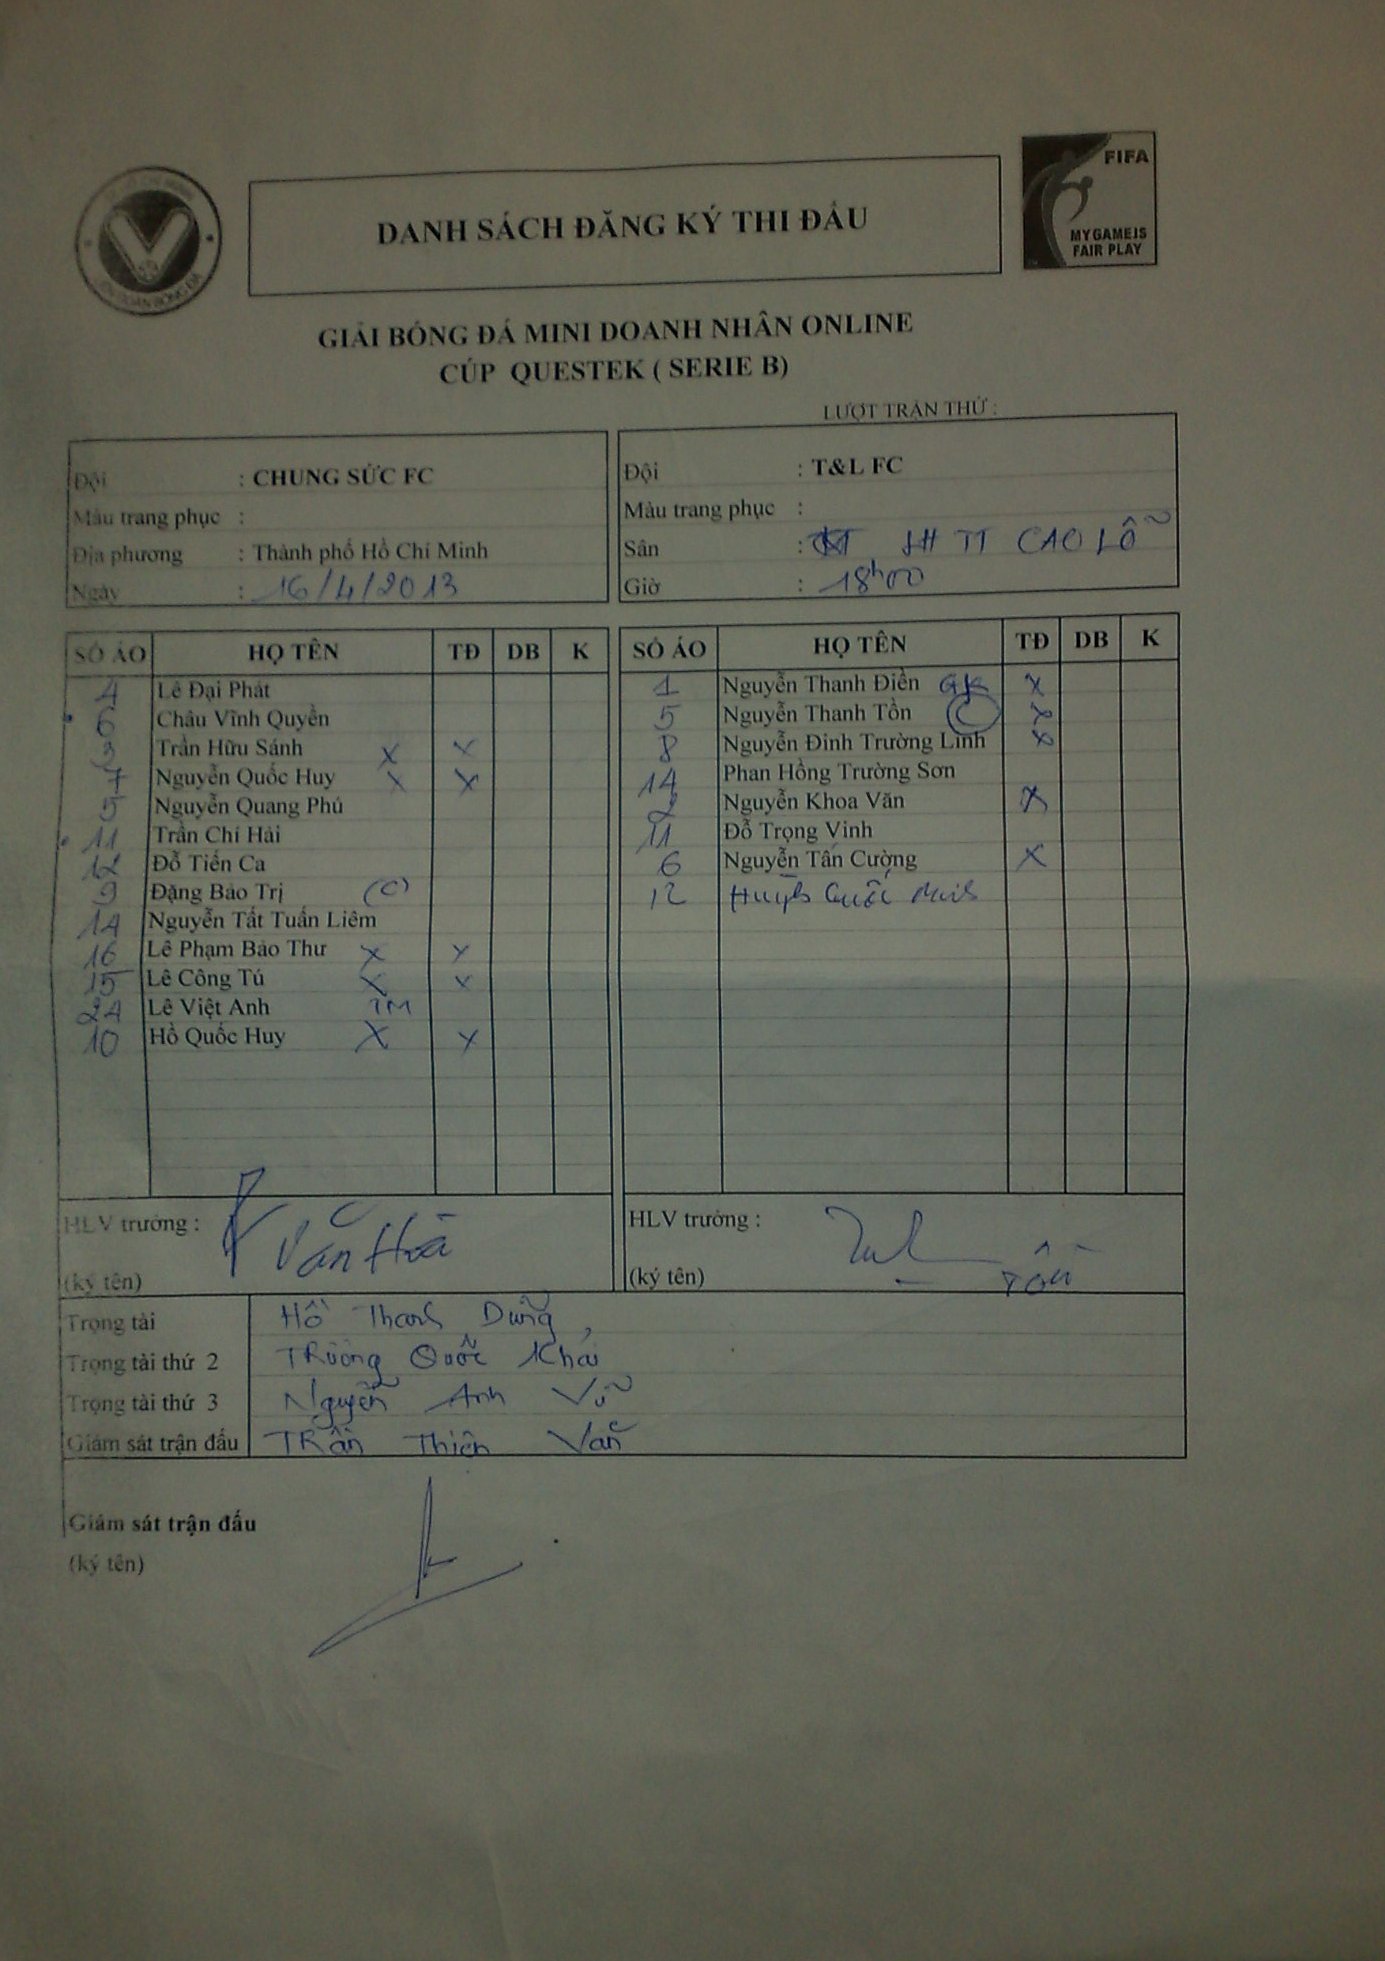 FIFA
MY GAME IS
FAIR PLAY
DANH SÁCH ĐĂNG KÝ THI ĐẤU
GIẢI BÓNG ĐÁ MINI DOANH NHÂN ONLINE
CÚP QUESTEK ( SERIE B)
LƯỢT TRẬN THỨ :
Đội : CHUNG SỨC FC
Màu trang phục :
Địa phương : Thành phố Hồ Chí Minh
Ngày : 16/4/2013
Đội : T&L FC
Màu trang phục :
Sân : TT CAO LỖ
Giờ : 18h00
SỐ ÁO HỌ TÊN TĐ DB K
4 Lê Đại Phát
6 Châu Vĩnh Quyền
3 Trần Hữu Sánh X X
7 Nguyễn Quốc Huy X X
5 Nguyễn Quang Phú
11 Trần Chí Hải
12 Đỗ Tiến Ca
9 Đặng Bảo Trị (C)
14 Nguyễn Tất Tuấn Liêm
16 Lê Phạm Bảo Thư X X
15 Lê Công Tú X X
24 Lê Việt Anh TM
10 Hồ Quốc Huy X X
SỐ ÁO HỌ TÊN TĐ DB K
1 Nguyễn Thanh Điền GK X
5 Nguyễn Thanh Tồn C X
8 Nguyễn Đình Trường Linh X
14 Phan Hồng Trường Sơn
2 Nguyễn Khoa Văn X
11 Đỗ Trọng Vinh
6 Nguyễn Tấn Cường X
12 Huỳnh Quốc Minh
HLV trưởng :
Văn Hoà
(ký tên)
HLV trưởng :
Tồn
(ký tên)
Trọng tài Hồ Thanh Dũng
Trọng tài thứ 2 Trương Quốc Khái
Trọng tài thứ 3 Nguyễn Anh Vũ
Giám sát trận đấu Trần Thiện Văn
Giám sát trận đấu
(ký tên)